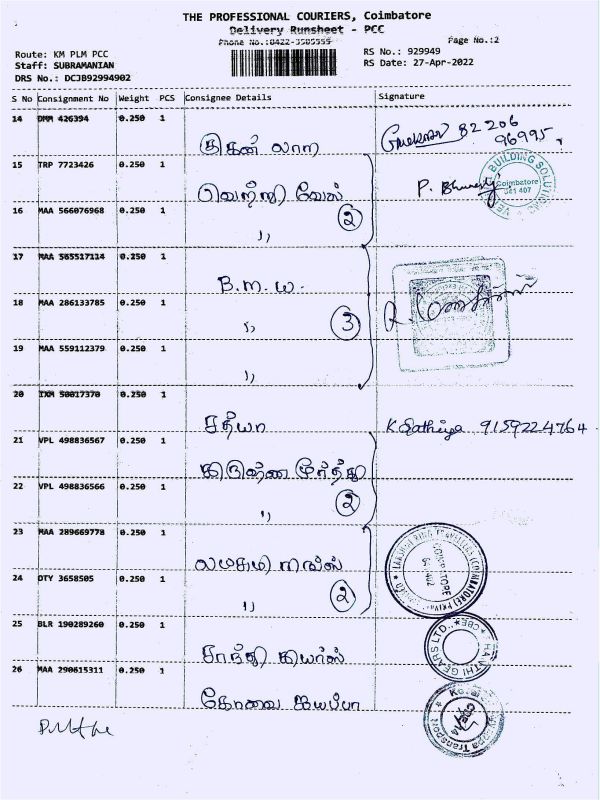 THE PROFESSIONAL COURIERS, Coimbatore
Delivery Runsheet - PCC
Phone No.:0422-3505555
Page No.:2
Route: KM PLM PCC
RS No.: 929949
Staff: SUBRAMANIAN
RS Date: 27-Apr-2022
DRS No.: DCJB92994902
S No Consignment No Weight PCS Consignee Details Signature
14 DMM 426394 0.250 1
82 206
96995
15 TRP 7723426 0.250 1 வெற்றி வேல்
P.
BUILDING SOLUTIONS
Coimbatore
641 407
16 MAA 566076968 0.250 1 ,, 2
17 MAA 565517114 0.250 1 B.m.w.
18 MAA 286133785 0.250 1 ,, 3
R.
19 MAA 559112379 0.250 1 ,,
20 IXM 50017370 0.250 1 சத்யா K Sathiya 9159224764
21 VPL 498836567 0.250 1 கிருஷ்ண மூர்த்தி
22 VPL 498836566 0.250 1 ,, 2
23 MAA 289669778 0.250 1 லட்சுமி ரிங்ஸ்
LAKSHMI RING TRAVELLERS (COIMBATORE) PRIVATE
COIMBATORE
641 402
24 OTY 3658505 0.250 1 ,, 2
25 BLR 190289260 0.250 1 சாந்தி கியர்ஸ்
SHANTHI GEARS LTD., CBE
26 MAA 290615311 0.250 1 கோவை ஐயப்பா
Transport